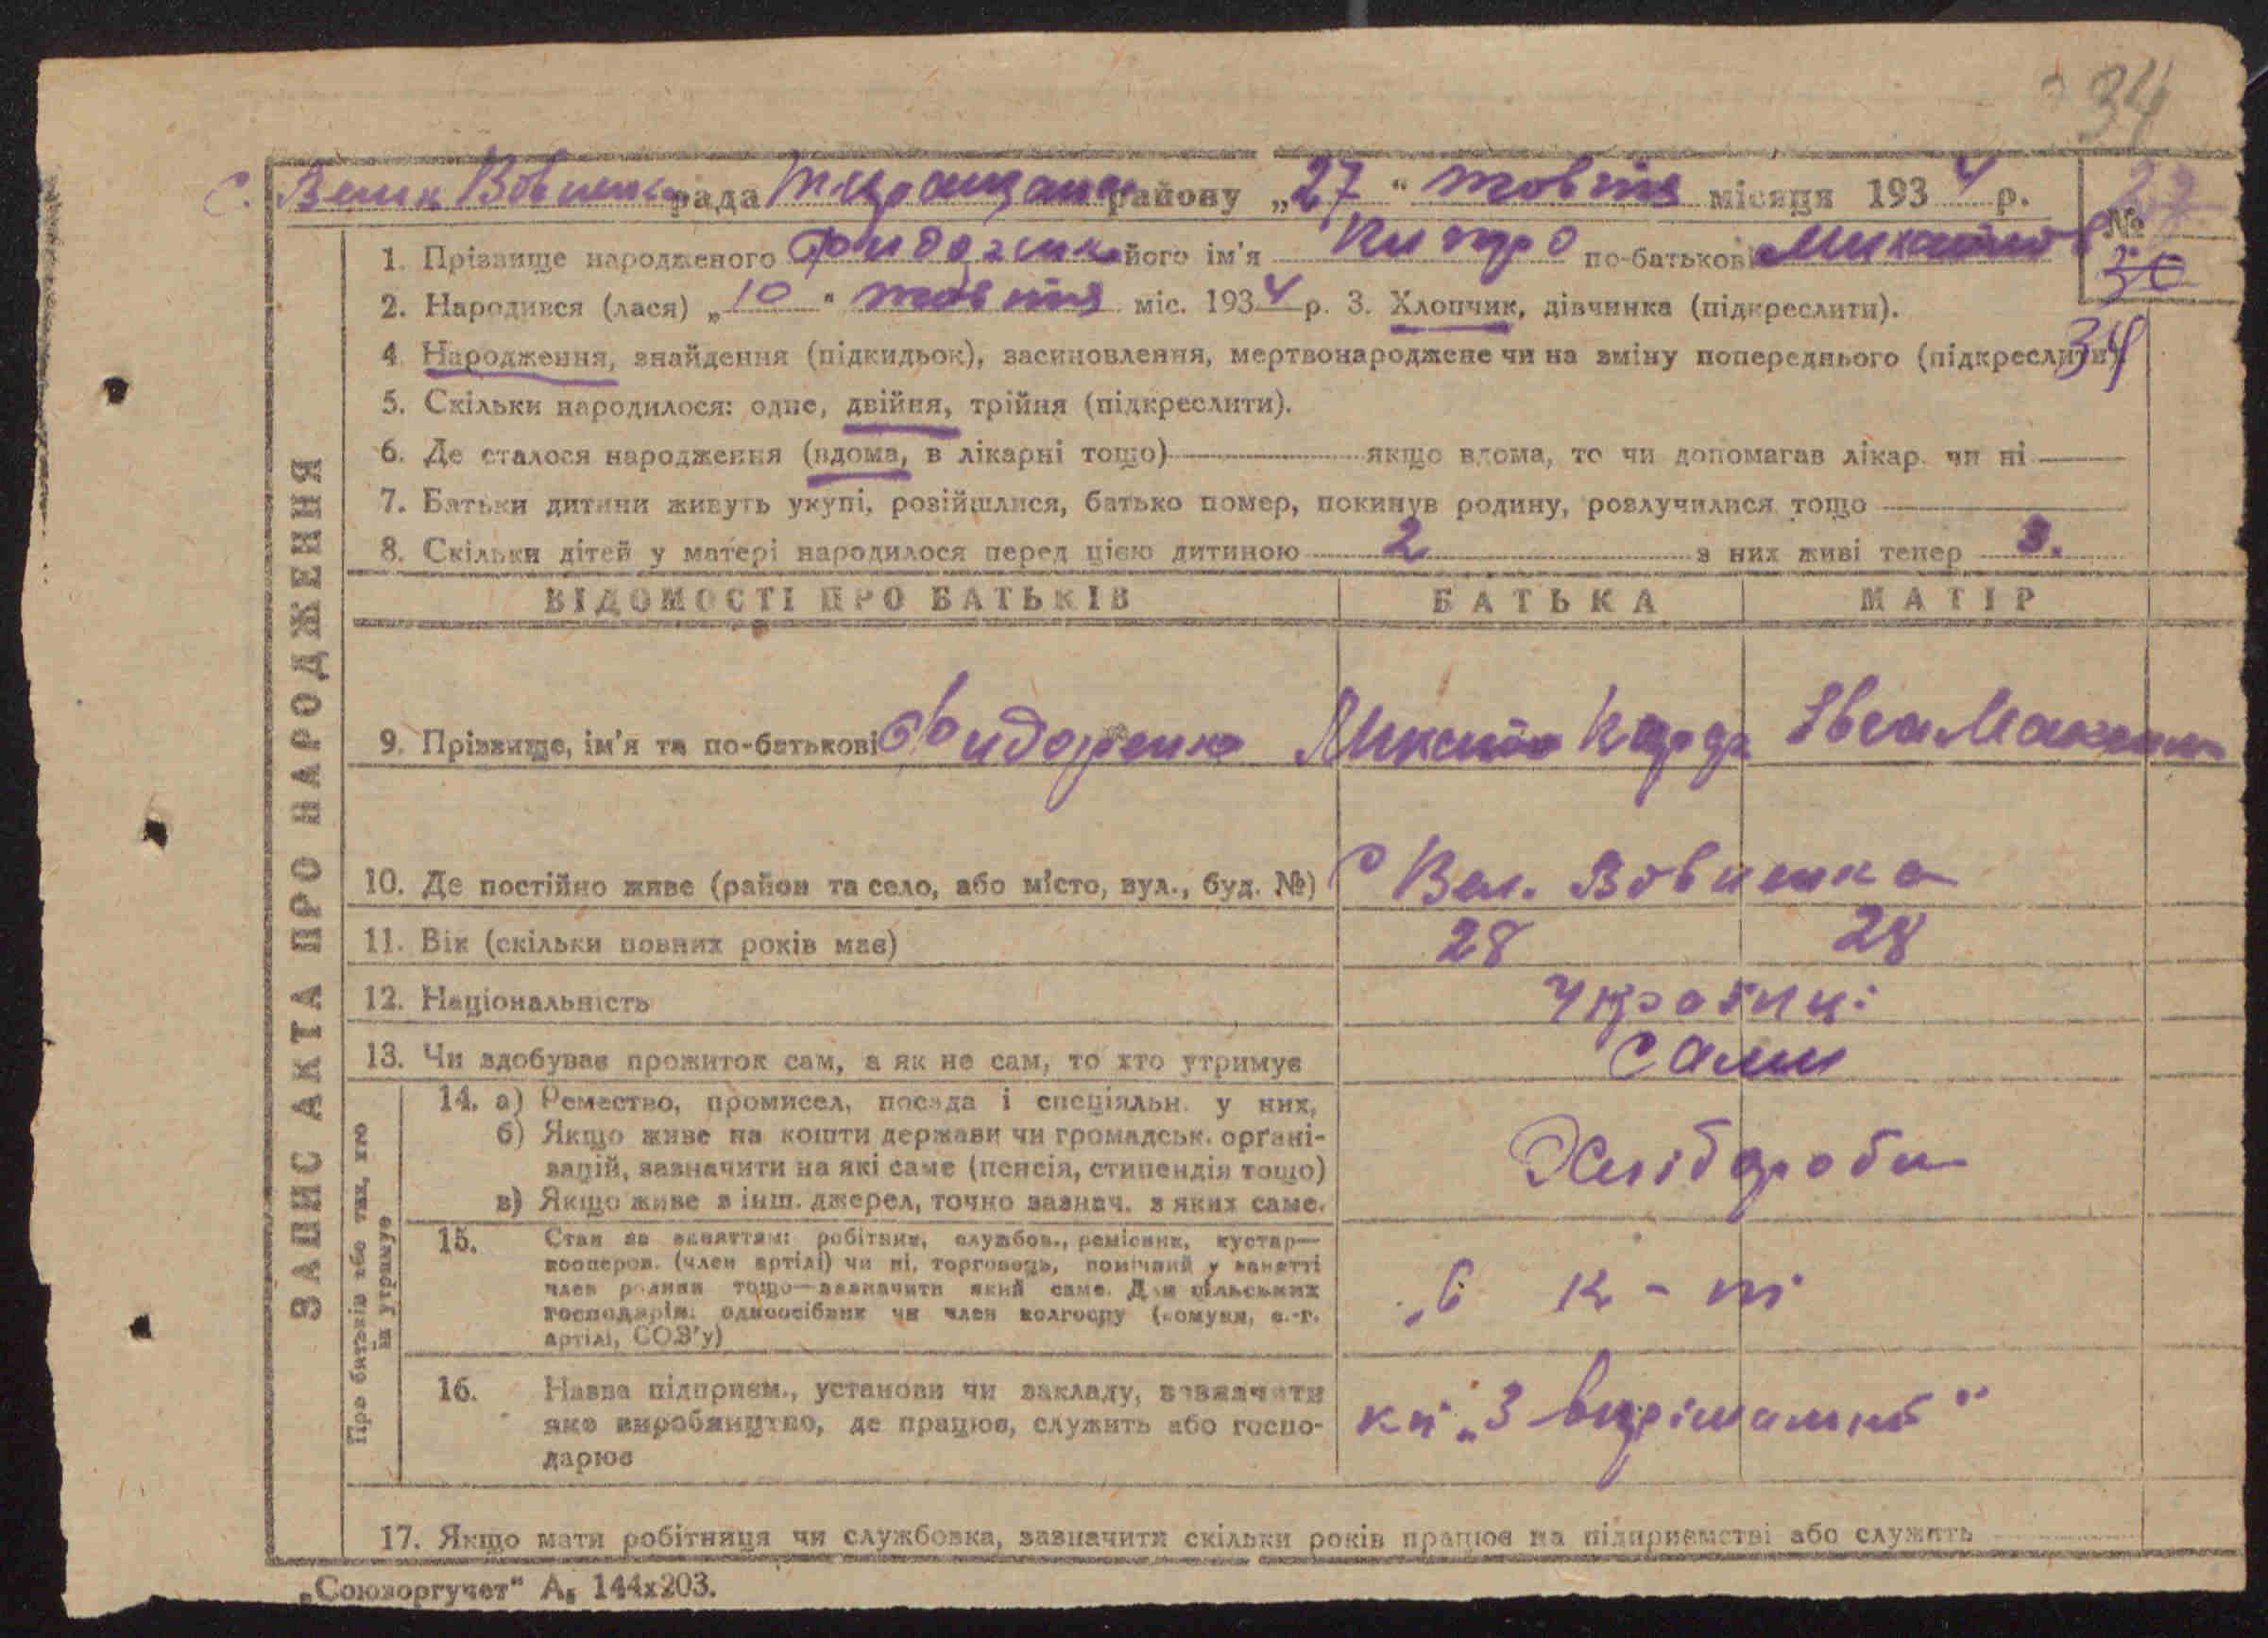 34
с. Велик Вовнянка рада Таращан району „27“ жовтня місяця 1934 р.
№ 27
30
34
1. Прізвище народженого його ім'я Китро по-батькові Михайлов
2. Народився (лася) „10“ жовтня міс. 1934 р. 3. Хлопчик, дівчинка (підкреслити).
4. Народження, знайдення (підкидьок), засиновлення, мертвонароджене чи на зміну попереднього (підкреслити)
5. Скільки народилося: одне, двійня, трійня (підкреслити).
6. Де сталося народження (вдома, в лікарні тощо) якщо вдома, то чи допомагав лікар чи ні
7. Батьки дитини живуть укупі, розійшлися, батько помер, покинув родину, розлучилися тощо
8. Скільки дітей у матері народилося перед цією дитиною 2 з них живі тепер 3.
ЗАПИС АКТА ПРО НАРОДЖЕННЯ
ВІДОМОСТІ ПРО БАТЬКІВ БАТЬКА МАТІР
9. Прізвище, ім'я та по-батькові Михайло
10. Де постійно живе (район та село, або місто, вул., буд. №) с Вел. Вовнянка
11. Вік (скільки повних років має) 28 28
12. Національність Україньці
13. Чи здобуває прожиток сам, а як не сам, то хто утримує сами
Про батьків або тих, хто їх утримує
14. а) Ремество, промисел, посада і спеціяльн. у них,
б) Якщо живе на кошти держави чи громадськ. орґані-
зацій, зазначити на які саме (пенсія, стипендія тощо) Хлібороби
в) Якщо живе з інш. джерел, точно зазнач. з яких саме.
15. Стан за заняттям: робітник, службов., ремісник, кустар—
кооперов. (член артілі) чи ні, торговець, помічний у занятті
член родини тощо—зазначити який саме. Для сільських
господарів: одноосібник чи член колгоспу (комуни, с.-г.
артілі, СОЗ'у)
к-пі
16. Назва підприєм., установи чи закладу, зазначити
яке виробництво, де працює, служить або госпо-
дарює
„3 вирішальний“
17. Якщо мати робітниця чи службовка, зазначити скільки років працює на підприємстві або служить
„Союзоргучет“ А₅ 144х203.